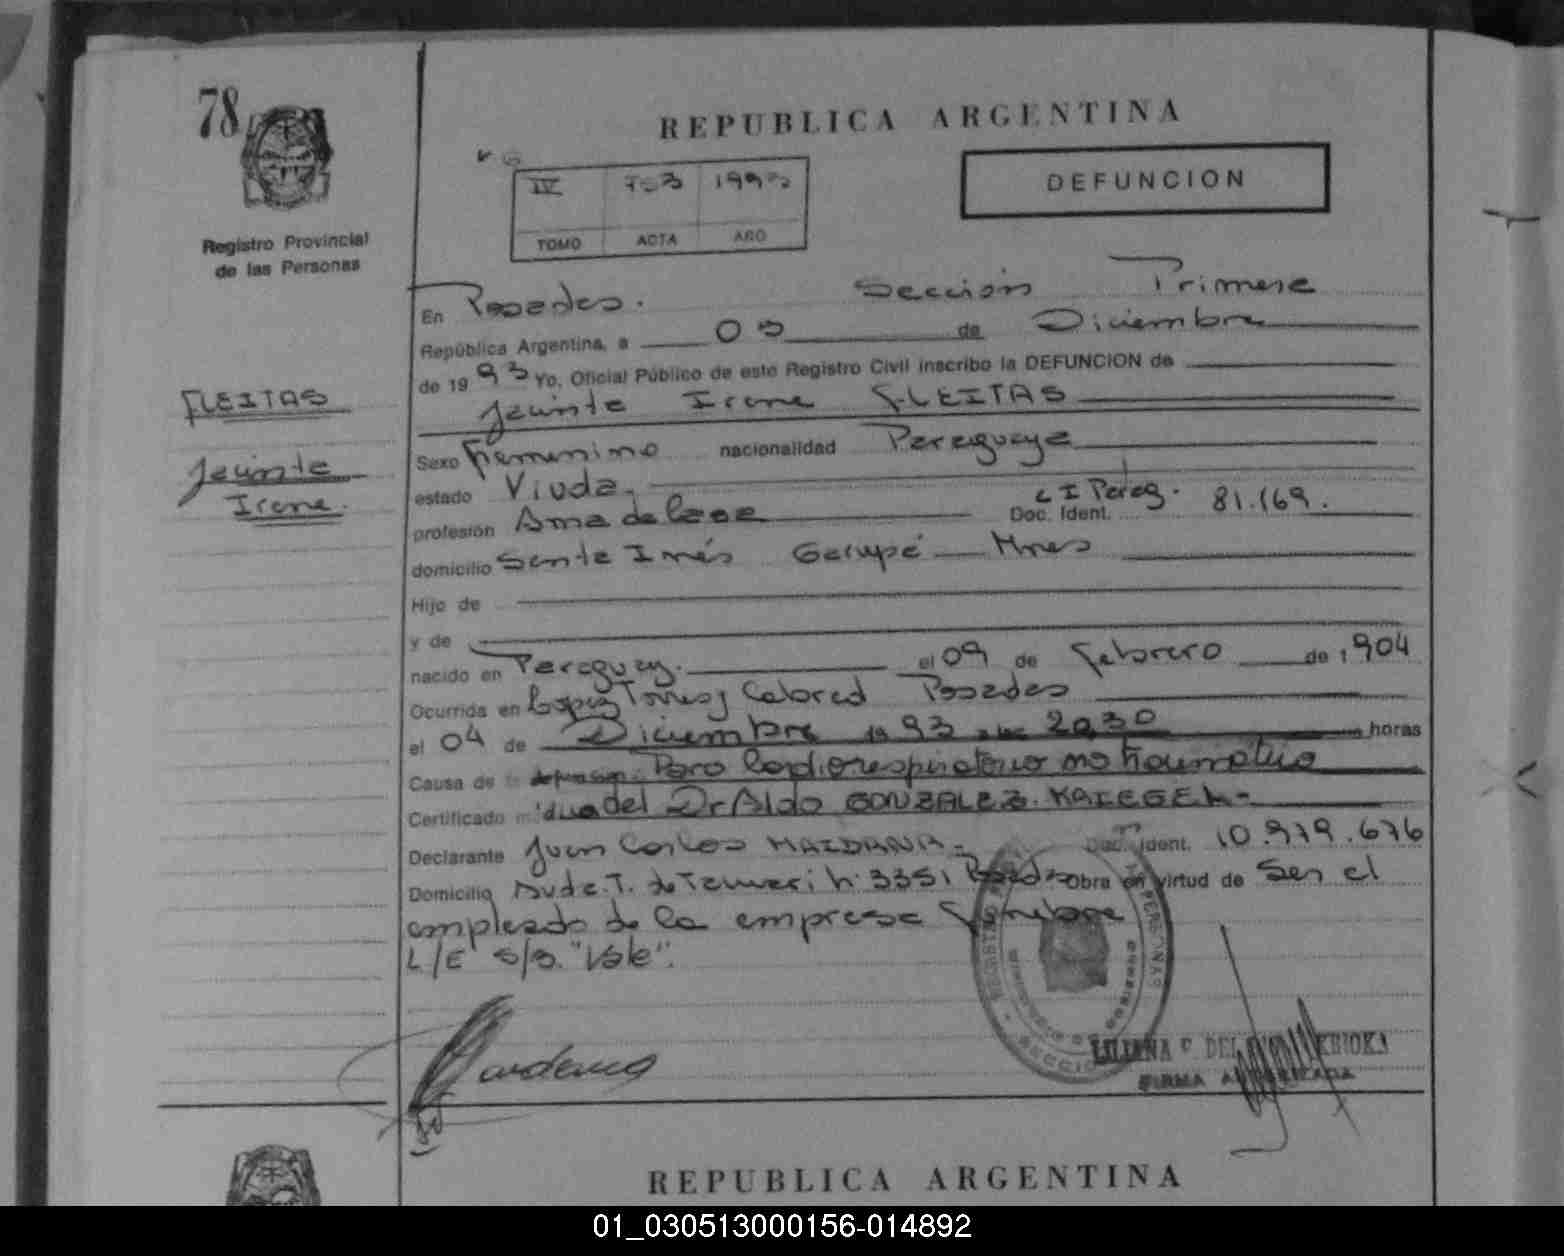 78
REPUBLICA ARGENTINA
IV 703 1993
TOMO ACTA AÑO
DEFUNCION
Registro Provincial
de las Personas
En Posadas. Sección Primera
República Argentina, a 03 de Diciembre
de 1993 Yo, Oficial Público de este Registro Civil inscribo la DEFUNCION de
Jacinta Irene FLEITAS
FLEITAS
Jacinta
Irene.
Sexo Femenino nacionalidad Paraguaya
estado Viuda.
profesión Ama de Casa Doc. Ident. C I Parag. 81.169.
domicilio Santa Inés Garupá Mnes
Hijo de
y de
nacido en Paraguay. el 09 de Febrero de 1904
Ocurrida en Lopez Torres y Cabred Posadas
el 04 de Diciembre 1993 a las 20,30 horas
Causa de la defunción: Paro Cardiorespiratorio no traumatico
Certificado médico del Dr Aldo GONZALEZ
Declarante Juan Carlos MAIDANA.- Doc. Ident. 10.979.676
Domicilio Avda. T. de Tacuari n: 3351 Posadas Obra en virtud de Ser el
empleado de la empresa
L/E S/B. "Vale".
LILIANA DEL KRIOKA
FIRMA AUTORIZADA
REPUBLICA ARGENTINA
01_030513000156-014892